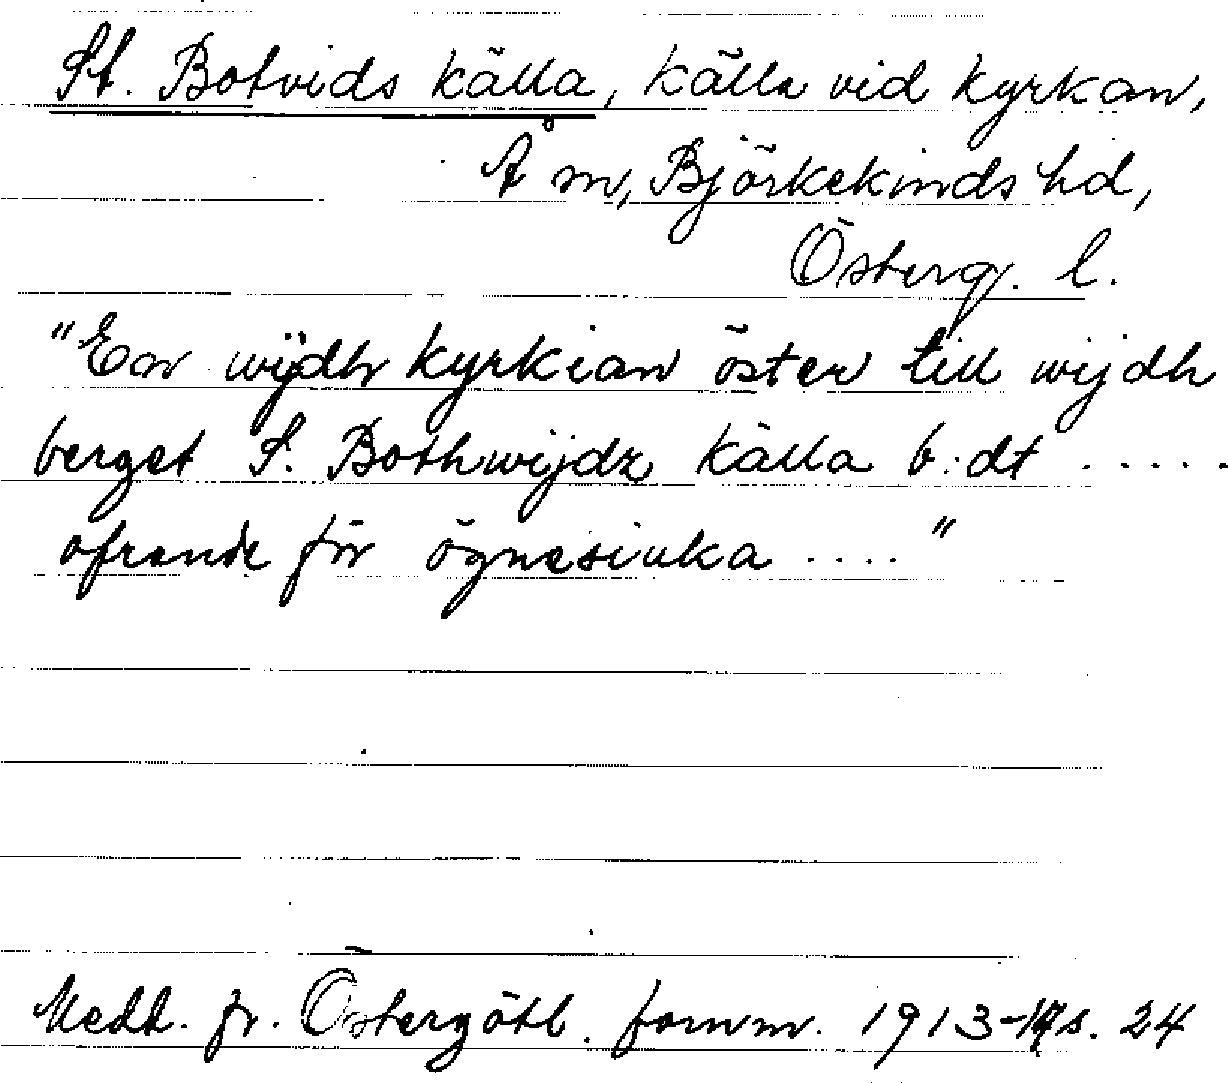 St. Botvids källa, källa vid kyrkan,
Å sn, Björkekinds hd,
Österg. l.
"Ear wijdh kyrkian öster till wijdh
berget S. Bothwijdz källa b. dt .....
ofrande för ögnesiuka ...."
Medd. fr. Östergötl. fornm. 1913-14 s. 24